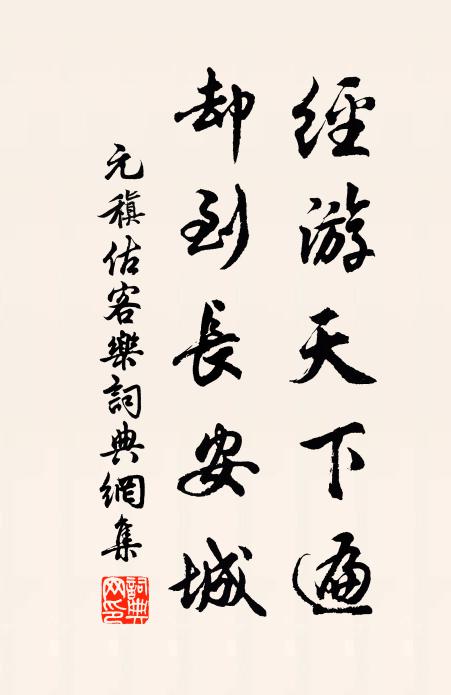 經游天下遍
却到長安城
元稹估客樂詞典網集
詞典网印